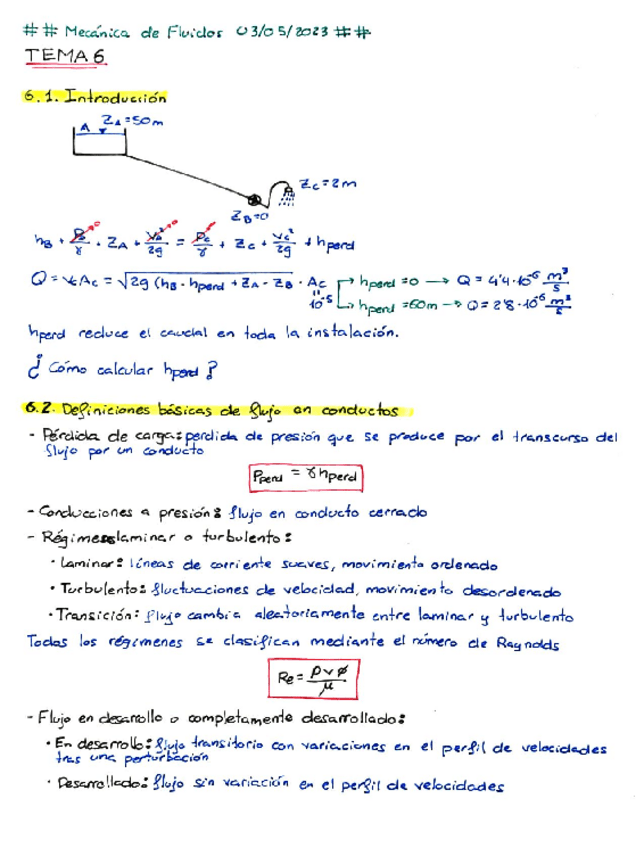 ## Mecánica de Fluidos 03/05/2023 ##
TEMA 6
6.1. Introducción
A Z_A=50m
Z_C=2m
Z_B=0
h_B + P_A/γ + Z_A + V_A²/2g = P_C/γ + Z_C + V_C²/2g + h_perd
Q = V_C A_C = √(2g (h_B - h_perd + Z_A - Z_B)) · A_C → h_perd = 0 → Q = 4'4·10⁻⁶ m³/s
10⁻⁵ → h_perd = 60m → Q = 2'8·10⁻⁶ m³/s
h_perd reduce el caudal en toda la instalación.
¿ Cómo calcular h_perd ?
6.2. Definiciones básicas de flujo en conductos
- Pérdida de carga: perdida de presión que se produce por el transcurso del
flujo por un conducto
P_perd = γ h_perd
- Conducciones a presión: flujo en conducto cerrado
- Régimenes laminar o turbulento:
· Laminar: líneas de corriente suaves, movimiento ordenado
· Turbulento: fluctuaciones de velocidad, movimiento desordenado
· Transición: flujo cambia aleatoriamente entre laminar y turbulento
Todos los régimenes se clasifican mediante el número de Raynolds
Re = ρvφ/μ
- Flujo en desarrollo o completamente desarrollado:
· En desarrollo: flujo transitorio con variaciones en el perfil de velocidades
tras una perturbación
· Desarrollado: flujo sin variación en el perfil de velocidades